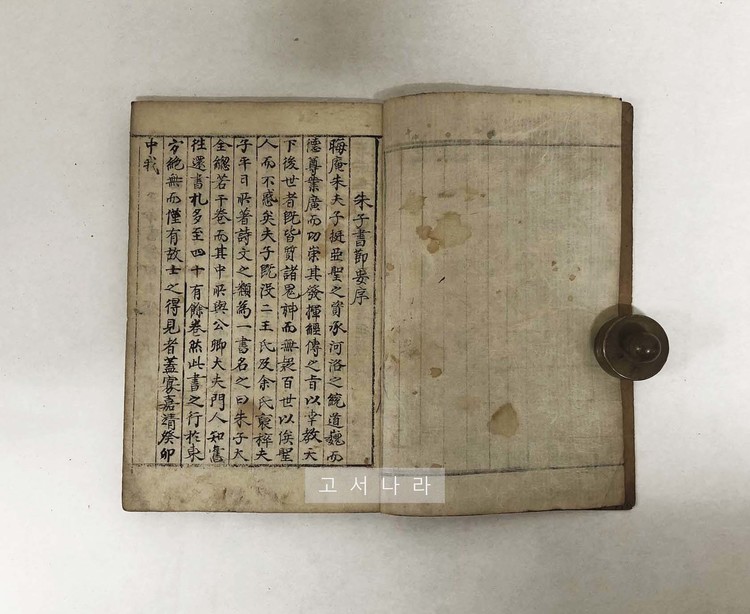 朱子書節要序
晦庵朱夫子挺亞聖之資承河洛之統道巍而
德尊業廣而功崇其發揮經傳之旨以幸教天
下後世者旣皆質諸鬼神而無疑百世以俟聖
人而不惑矣夫子旣沒二王氏及余氏裒稡夫
子平日所著詩文之類爲一書名之曰朱子大
全總若干卷而其中所與公卿大夫門人知舊
往還書札多至四十有餘卷然此書之行於東
方絶無而僅有故士之得見者蓋寡嘉靖癸卯
中我
고서나라